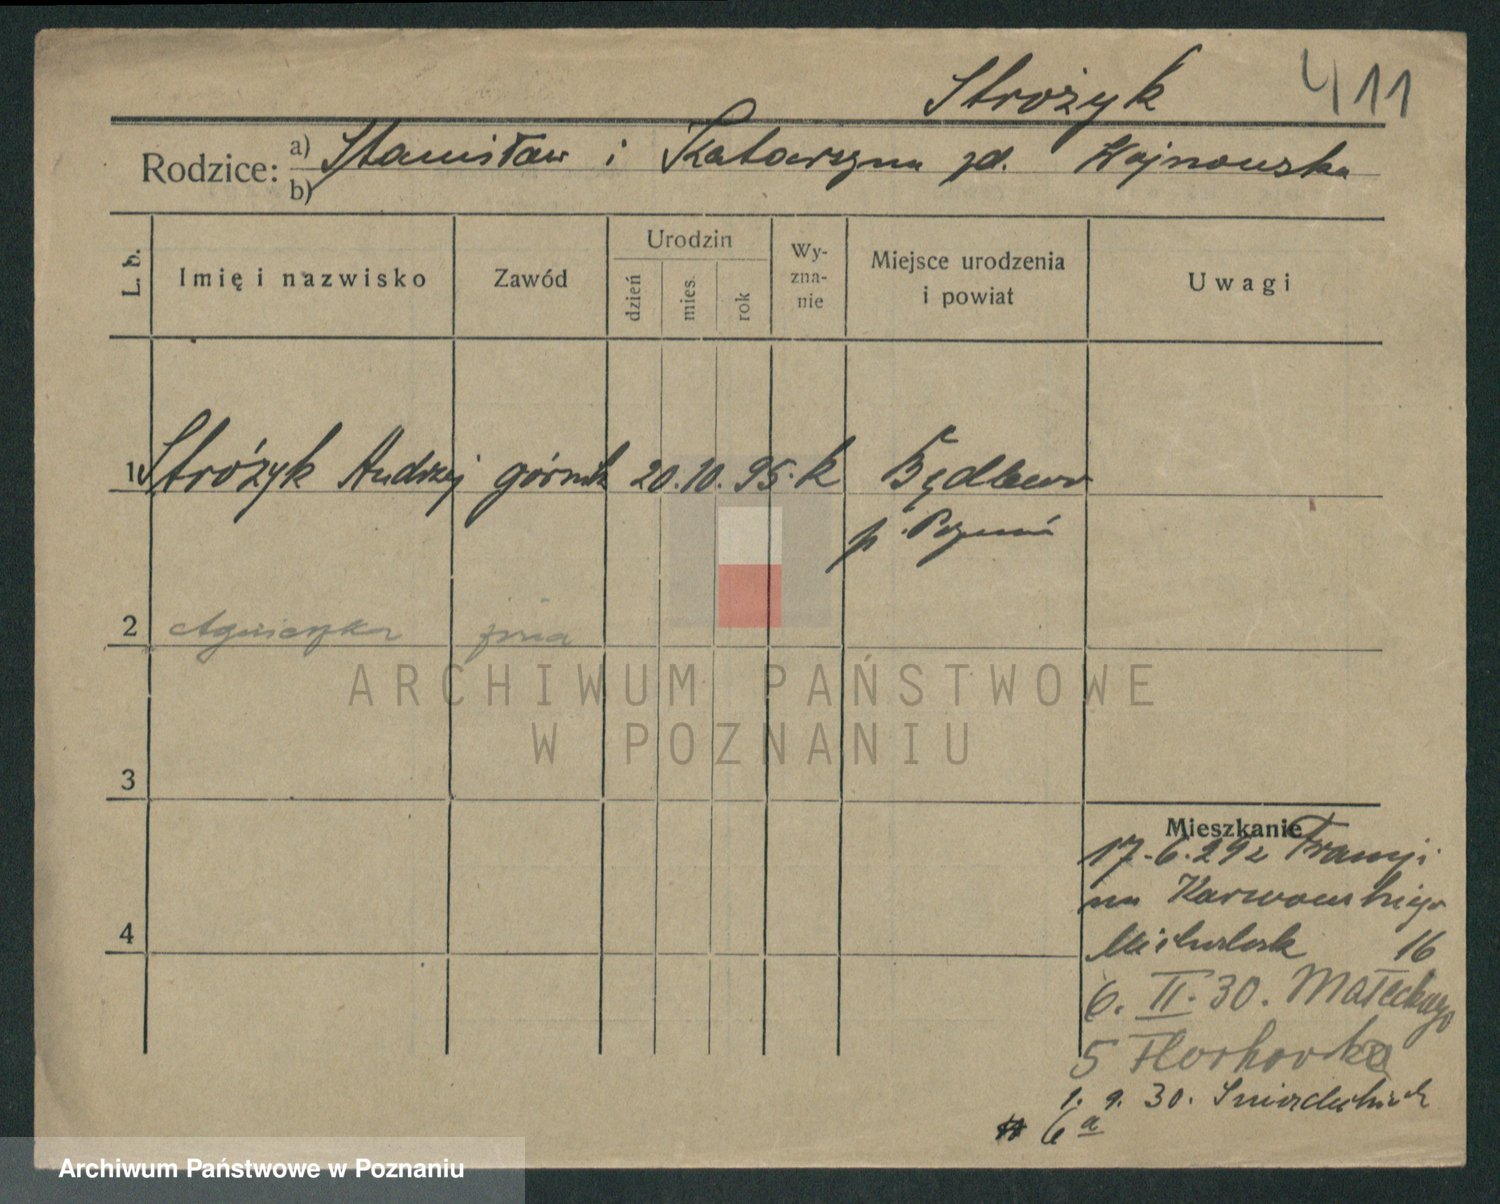 Strożyk 411
Rodzice: a) Stanisław i Katarzyna zd. Wojnowska
b)
L. b.
Imię i nazwisko
Zawód
Urodzin
dzień
mies.
rok
Wy-
zna-
nie
Miejsce urodzenia
i powiat
Uwagi
1 Stróżyk Andrzej górnik 20. 10. 95. k Będlewo
p. Poznań
2 Agnieszka żona
3
4
Mieszkanie
17.6.29 z Francji
na Karwowskiego
16
6. II. 30. Małeckiego
5
1. 9. 30. Śniadeckich
6a
ARCHIWUM PAŃSTWOWE
W POZNANIU
Archiwum Państwowe w Poznaniu